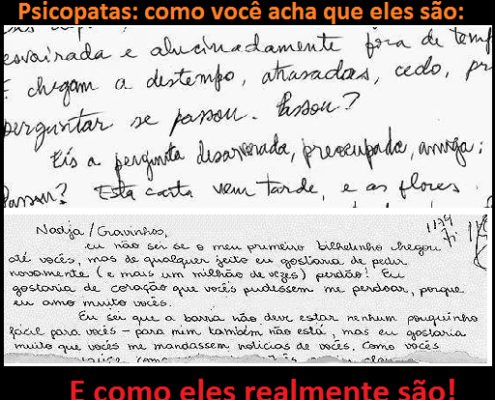 Psicopatas: como você acha que eles são:
esvairada e alucinadamente fora de temp
E chegam a destempo, atrasadas, cedo, pr
perguntar se passou. Passou?
Eis a pergunta desarvorada, preocupada, amiga:
Passou? Esta carta vem tarde, e as flores
1194
Nadja/Gravinhos,
eu não sei se o meu primeiro bilhetinho chegou
até vocês, mas de qualquer jeito eu gostaria de pedir
novamente (e mais um milhão de vezes) perdão! Eu
gostaria de coração que vocês pudessem me perdoar, porque
eu amo muito vocês.
Eu sei que a barra não deve estar nenhum pouquinho
fácil para vocês - para mim também não está, mas eu gostaria
muito que vocês me mandassem notícias de vocês. Como vocês
E como eles realmente são!